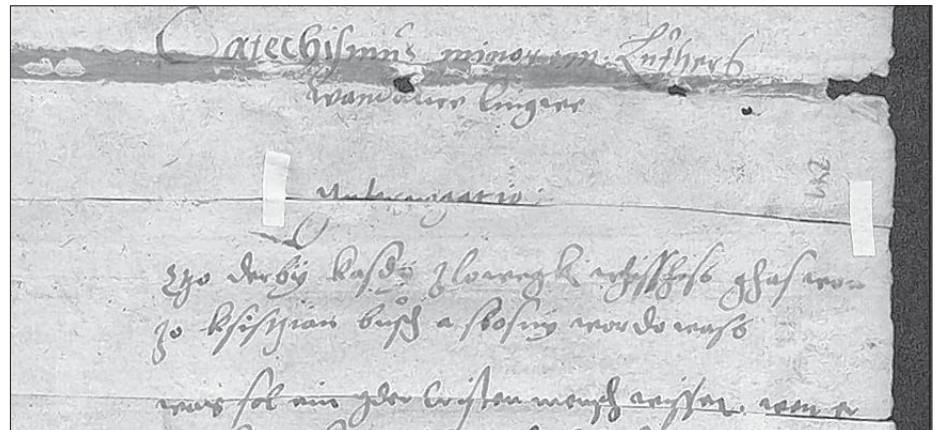 Catechismus minorem Luthers
wandalice lingue
Interrogatio:
241
Zzo derby kasdy zlowegk whisshess ghas won
zo ksistzian busch a sbosny wordowass
was sol ein yder Cristen mensch wissen, wen er